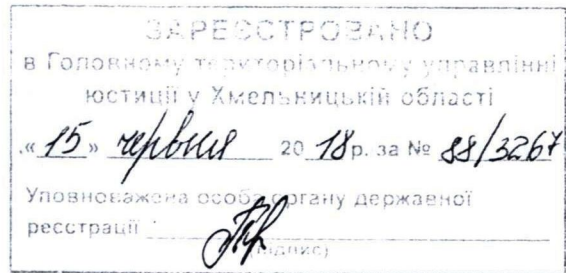 ЗАРЕЄСТРОВАНО
в Головному територіальному управлінні
юстиції у Хмельницькій області
„ 15 " червня 20 18 р. за № 88/3267
Уповноважена особа органу державної
реєстрації
(підпис)